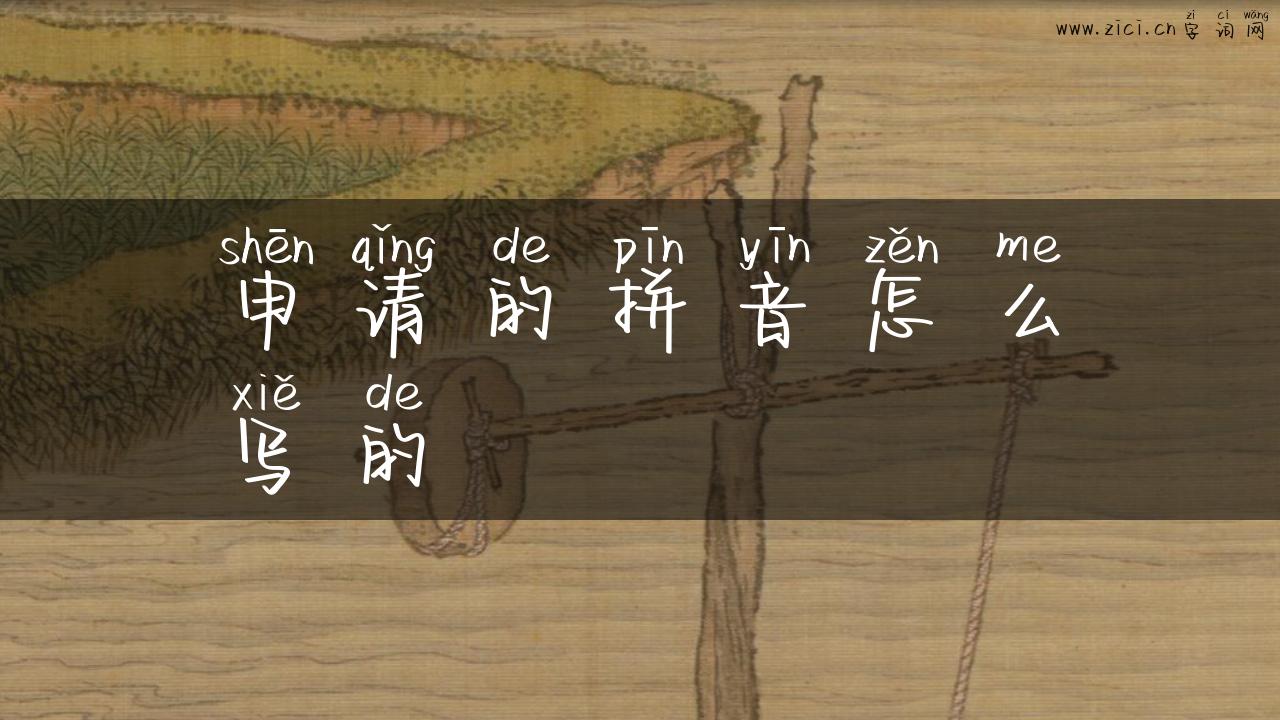 zì cí wǎng
www.zici.cn 字 词 网
shēn qǐng de pīn yīn zěn me
申 请 的 拼 音 怎 么
xiě de
写 的